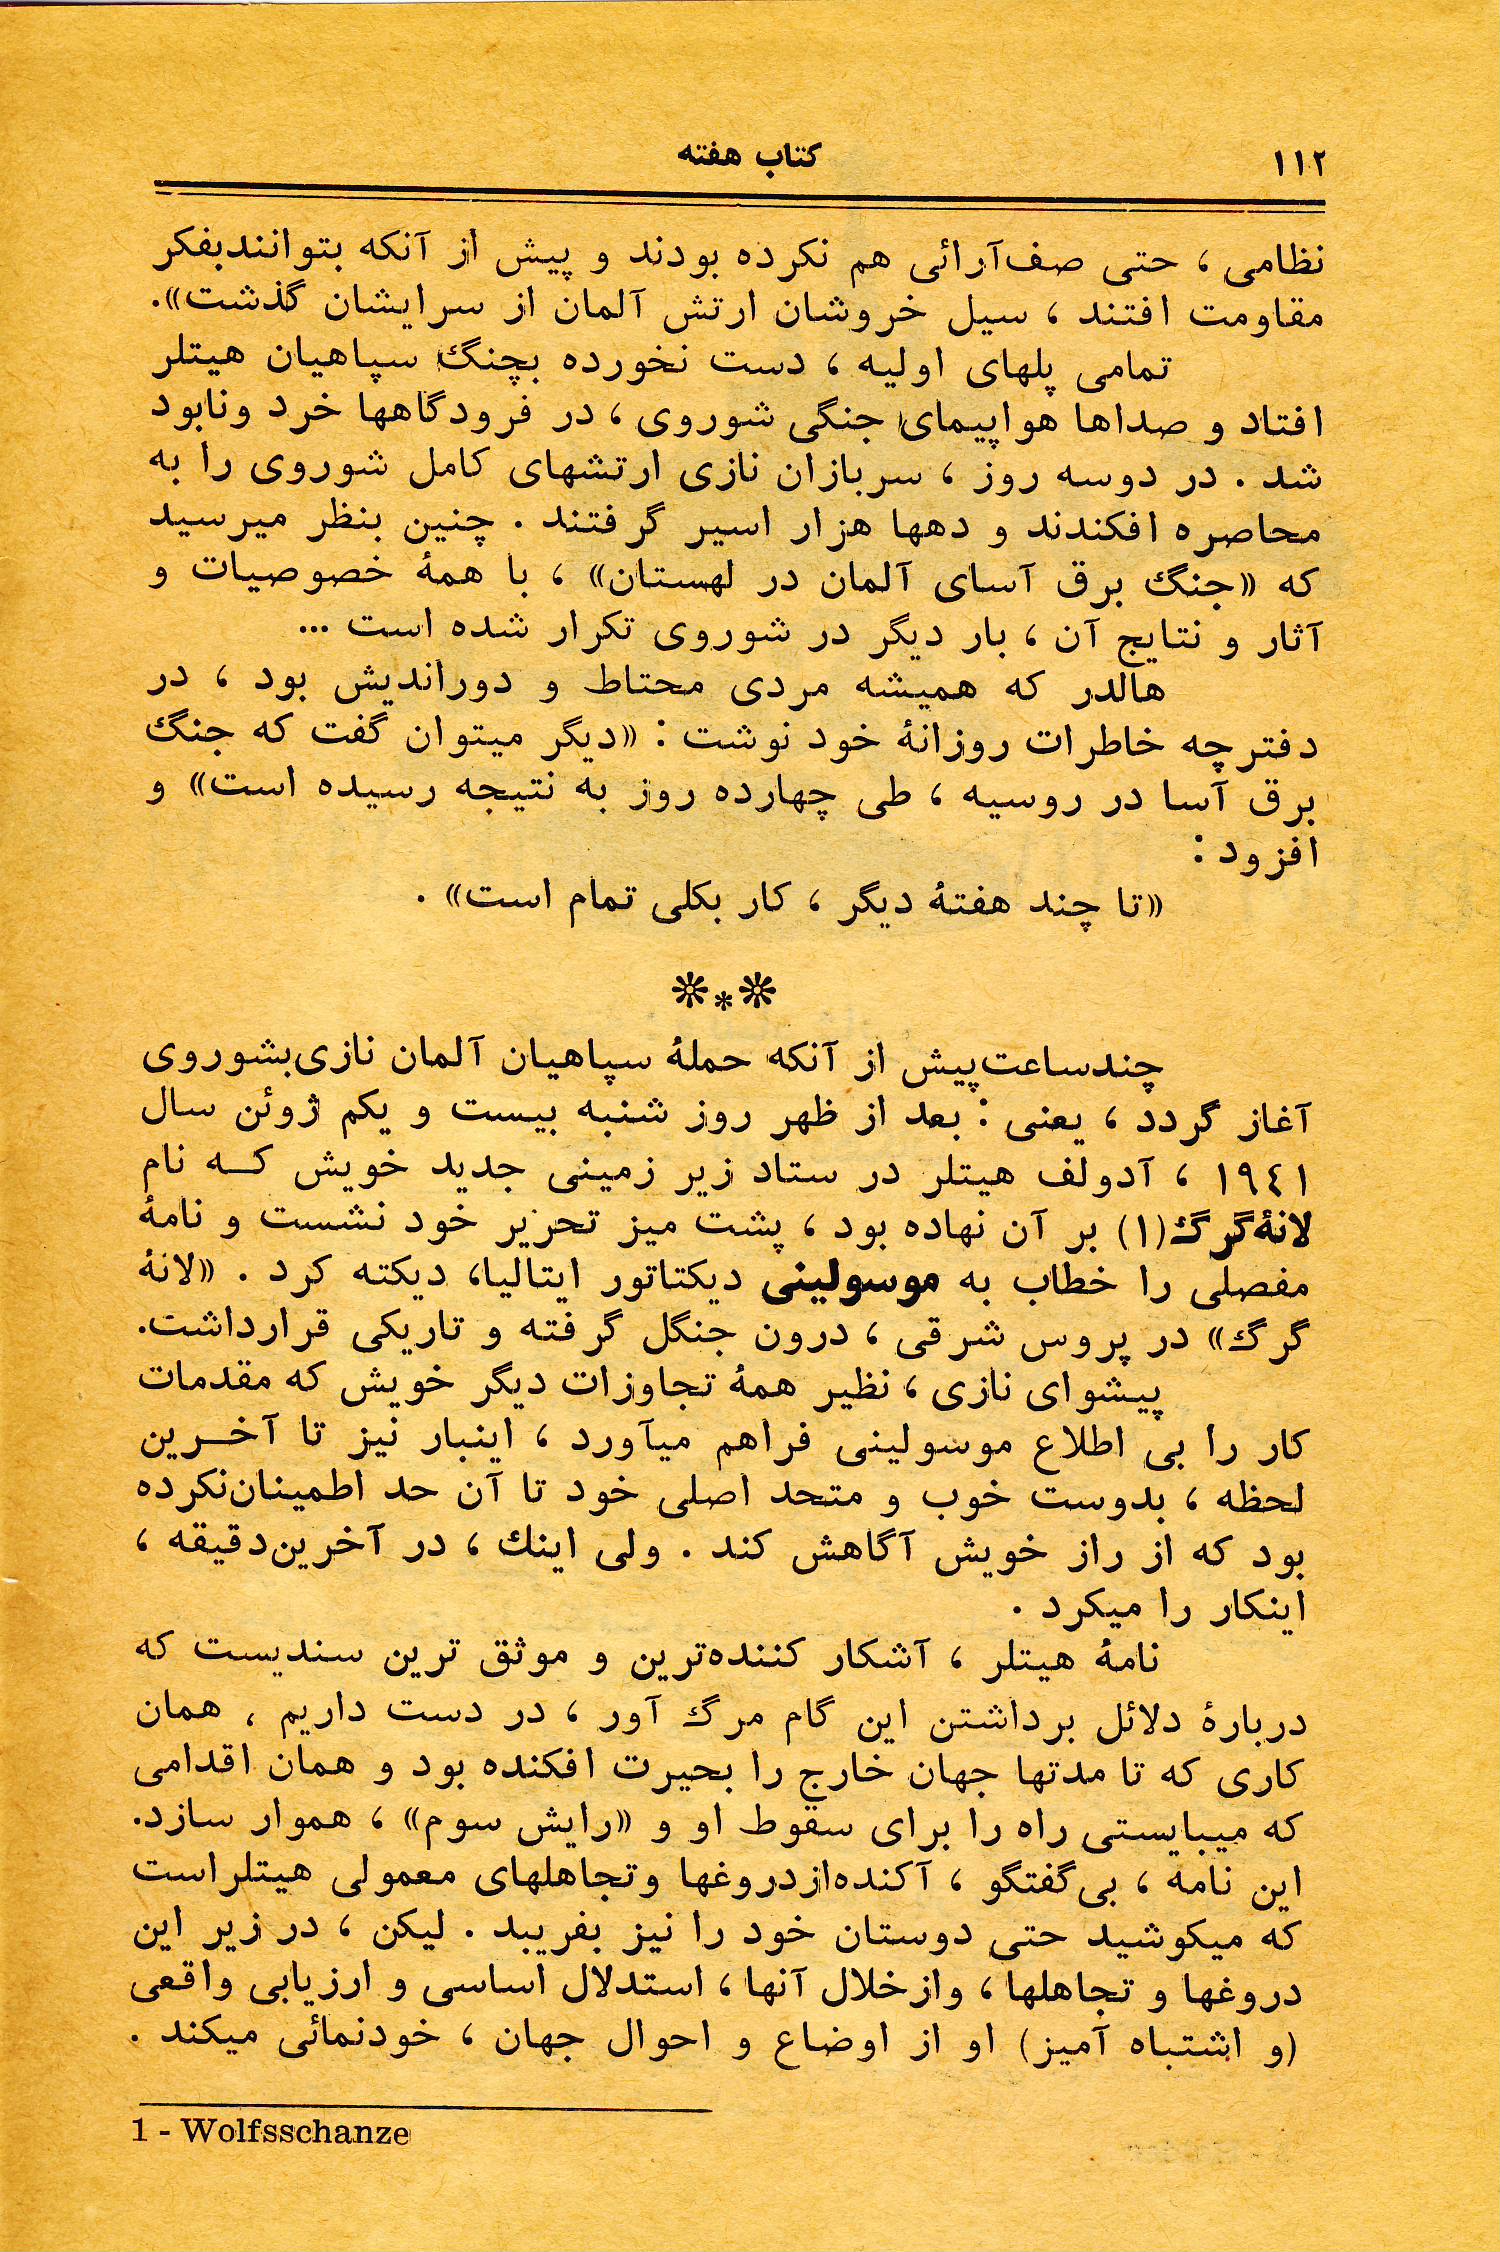 ۱۱۲
کتاب هفته
نظامی ، حتی صف‌آرائی هم نکرده بودند و پیش از آنکه بتوانندبفکر
مقاومت افتند ، سیل خروشان ارتش آلمان از سرایشان گذشت».
تمامی پلهای اولیه ، دست نخورده بچنگ سپاهیان هیتلر
افتاد و صداها هواپیمای جنگی شوروی ، در فرودگاهها خرد ونابود
شد . در دوسه روز ، سربازان نازی ارتشهای کامل شوروی را به
محاصره افکندند و دهها هزار اسیر گرفتند . چنین بنظر میرسید
که «جنگ برق آسای آلمان در لهستان» ، با همهٔ خصوصیات و
آثار و نتایج آن ، بار دیگر در شوروی تکرار شده است ...
هالدر که همیشه مردی محتاط و دوراندیش بود ، در
دفترچه خاطرات روزانهٔ خود نوشت : «دیگر میتوان گفت که جنگ
برق آسا در روسیه ، طی چهارده روز به نتیجه رسیده است» و
افزود :
«تا چند هفتهٔ دیگر ، کار بکلی تمام است» .
❊*❊
چندساعت‌پیش از آنکه حملهٔ سپاهیان آلمان نازی‌بشوروی
آغاز گردد ، یعنی : بعد از ظهر روز شنبه بیست و یکم ژوئن سال
۱۹٤۱ ، آدولف هیتلر در ستاد زیر زمینی جدید خویش کـه نام
لانهٔ‌گرگ(۱) بر آن نهاده بود ، پشت میز تحریر خود نشست و نامهٔ
مفصلی را خطاب به موسولینی دیکتاتور ایتالیا، دیکته کرد . «لانهٔ
گرگ» در پروس شرقی ، درون جنگل گرفته و تاریکی قرارداشت.
پیشوای نازی ، نظیر همهٔ تجاوزات دیگر خویش که مقدمات
کار را بی اطلاع موسولینی فراهم میآورد ، اینبار نیز تا آخـرین
لحظه ، بدوست خوب و متحد اصلی خود تا آن حد اطمینان‌نکرده
بود که از راز خویش آگاهش کند . ولی اینك ، در آخرین‌دقیقه ،
اینکار را میکرد .
نامهٔ هیتلر ، آشکار کننده‌ترین و موثق ترین سندیست که
دربارهٔ دلائل برداشتن این گام مرگ آور ، در دست داریم ، همان
کاری که تا مدتها جهان خارج را بحیرت افکنده بود و همان اقدامی
که میبایستی راه را برای سقوط او و «رایش سوم» ، هموار سازد.
این نامه ، بی‌گفتگو ، آکنده‌ازدروغها وتجاهلهای معمولی هیتلراست
که میکوشید حتی دوستان خود را نیز بفریبد . لیکن ، در زیر این
دروغها و تجاهلها ، وازخلال آنها ، استدلال اساسی و ارزیابی واقعی
(و اشتباه آمیز) او از اوضاع و احوال جهان ، خودنمائی میکند .
1 - Wolfsschanze